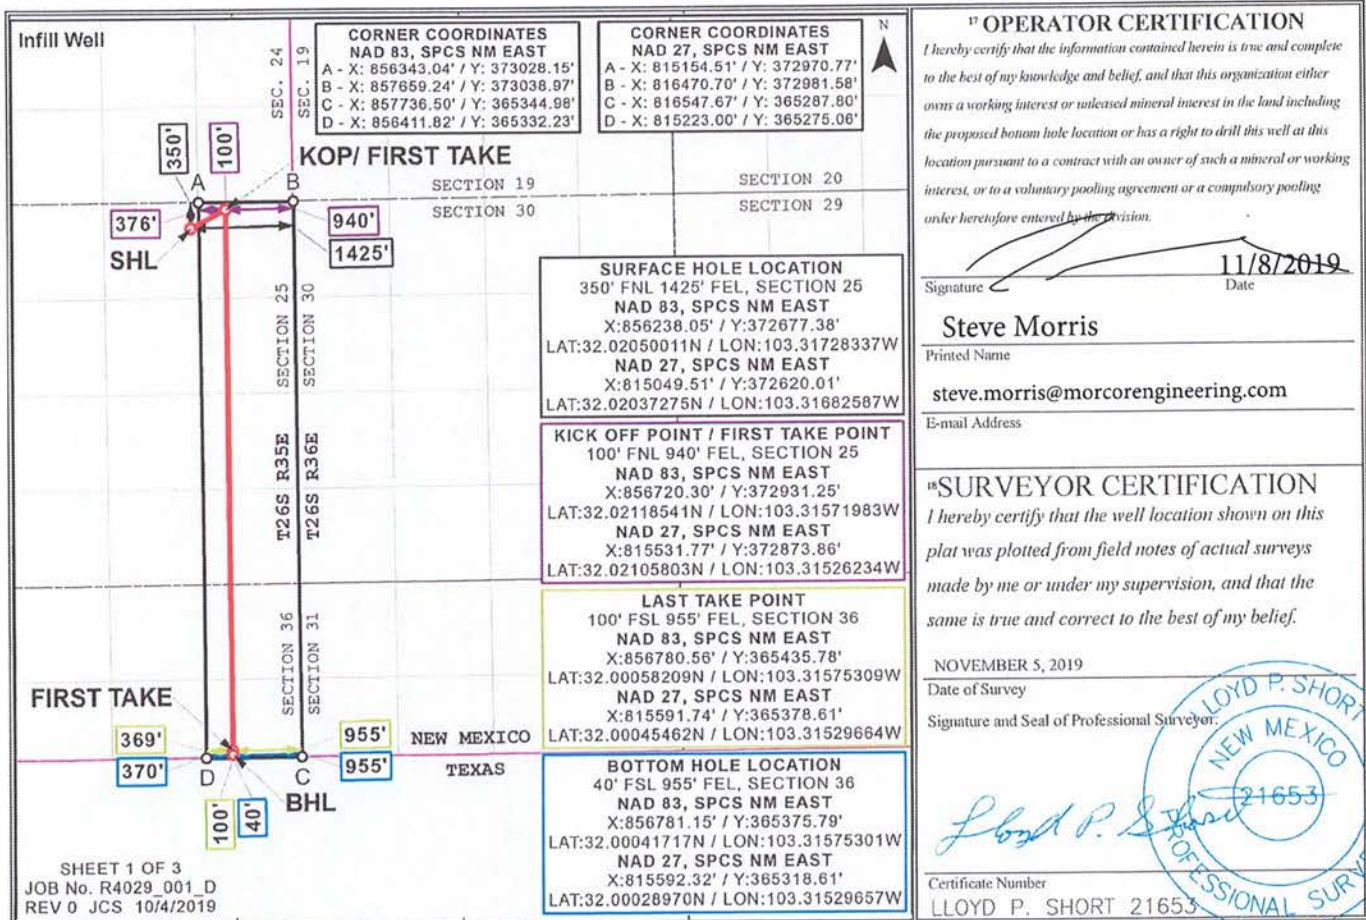 Infill Well
SEC. 24
SEC. 19
CORNER COORDINATES
NAD 83, SPCS NM EAST
A - X: 856343.04' / Y: 373028.15'
B - X: 857659.24' / Y: 373038.97'
C - X: 857736.50' / Y: 365344.98'
D - X: 856411.82' / Y: 365332.23'
CORNER COORDINATES
NAD 27, SPCS NM EAST
A - X: 815154.51' / Y: 372970.77'
B - X: 816470.70' / Y: 372981.58'
C - X: 816547.67' / Y: 365287.80'
D - X: 815223.00' / Y: 365275.06'
N
350'
100'
KOP/ FIRST TAKE
A
B
SECTION 19
SECTION 20
SECTION 30
SECTION 29
376'
940'
SHL
1425'
SECTION 25
SECTION 30
T26S R35E
T26S R36E
SECTION 36
SECTION 31
SURFACE HOLE LOCATION
350' FNL 1425' FEL, SECTION 25
NAD 83, SPCS NM EAST
X:856238.05' / Y:372677.38'
LAT:32.02050011N / LON:103.31728337W
NAD 27, SPCS NM EAST
X:815049.51' / Y:372620.01'
LAT:32.02037275N / LON:103.31682587W
KICK OFF POINT / FIRST TAKE POINT
100' FNL 940' FEL, SECTION 25
NAD 83, SPCS NM EAST
X:856720.30' / Y:372931.25'
LAT:32.02118541N / LON:103.31571983W
NAD 27, SPCS NM EAST
X:815531.77' / Y:372873.86'
LAT:32.02105803N / LON:103.31526234W
LAST TAKE POINT
100' FSL 955' FEL, SECTION 36
NAD 83, SPCS NM EAST
X:856780.56' / Y:365435.78'
LAT:32.00058209N / LON:103.31575309W
NAD 27, SPCS NM EAST
X:815591.74' / Y:365378.61'
LAT:32.00045462N / LON:103.31529664W
BOTTOM HOLE LOCATION
40' FSL 955' FEL, SECTION 36
NAD 83, SPCS NM EAST
X:856781.15' / Y:365375.79'
LAT:32.00041717N / LON:103.31575301W
NAD 27, SPCS NM EAST
X:815592.32' / Y:365318.61'
LAT:32.00028970N / LON:103.31529657W
FIRST TAKE
369'
955'
NEW MEXICO
370'
955'
TEXAS
D
C
BHL
100'
40'
SHEET 1 OF 3
JOB No. R4029_001_D
REV 0 JCS 10/4/2019
17 OPERATOR CERTIFICATION
I hereby certify that the information contained herein is true and complete
to the best of my knowledge and belief, and that this organization either
owns a working interest or unleased mineral interest in the land including
the proposed bottom hole location or has a right to drill this well at this
location pursuant to a contract with an owner of such a mineral or working
interest, or to a voluntary pooling agreement or a compulsory pooling
order heretofore entered by the division.
11/8/2019
Signature
Date
Steve Morris
Printed Name
steve.morris@morcorengineering.com
E-mail Address
18 SURVEYOR CERTIFICATION
I hereby certify that the well location shown on this
plat was plotted from field notes of actual surveys
made by me or under my supervision, and that the
same is true and correct to the best of my belief.
NOVEMBER 5, 2019
Date of Survey
Signature and Seal of Professional Surveyor:
LLOYD P. SHORT
NEW MEXICO
21653
PROFESSIONAL SURV
Lloyd P. Short
Certificate Number
LLOYD P. SHORT 21653